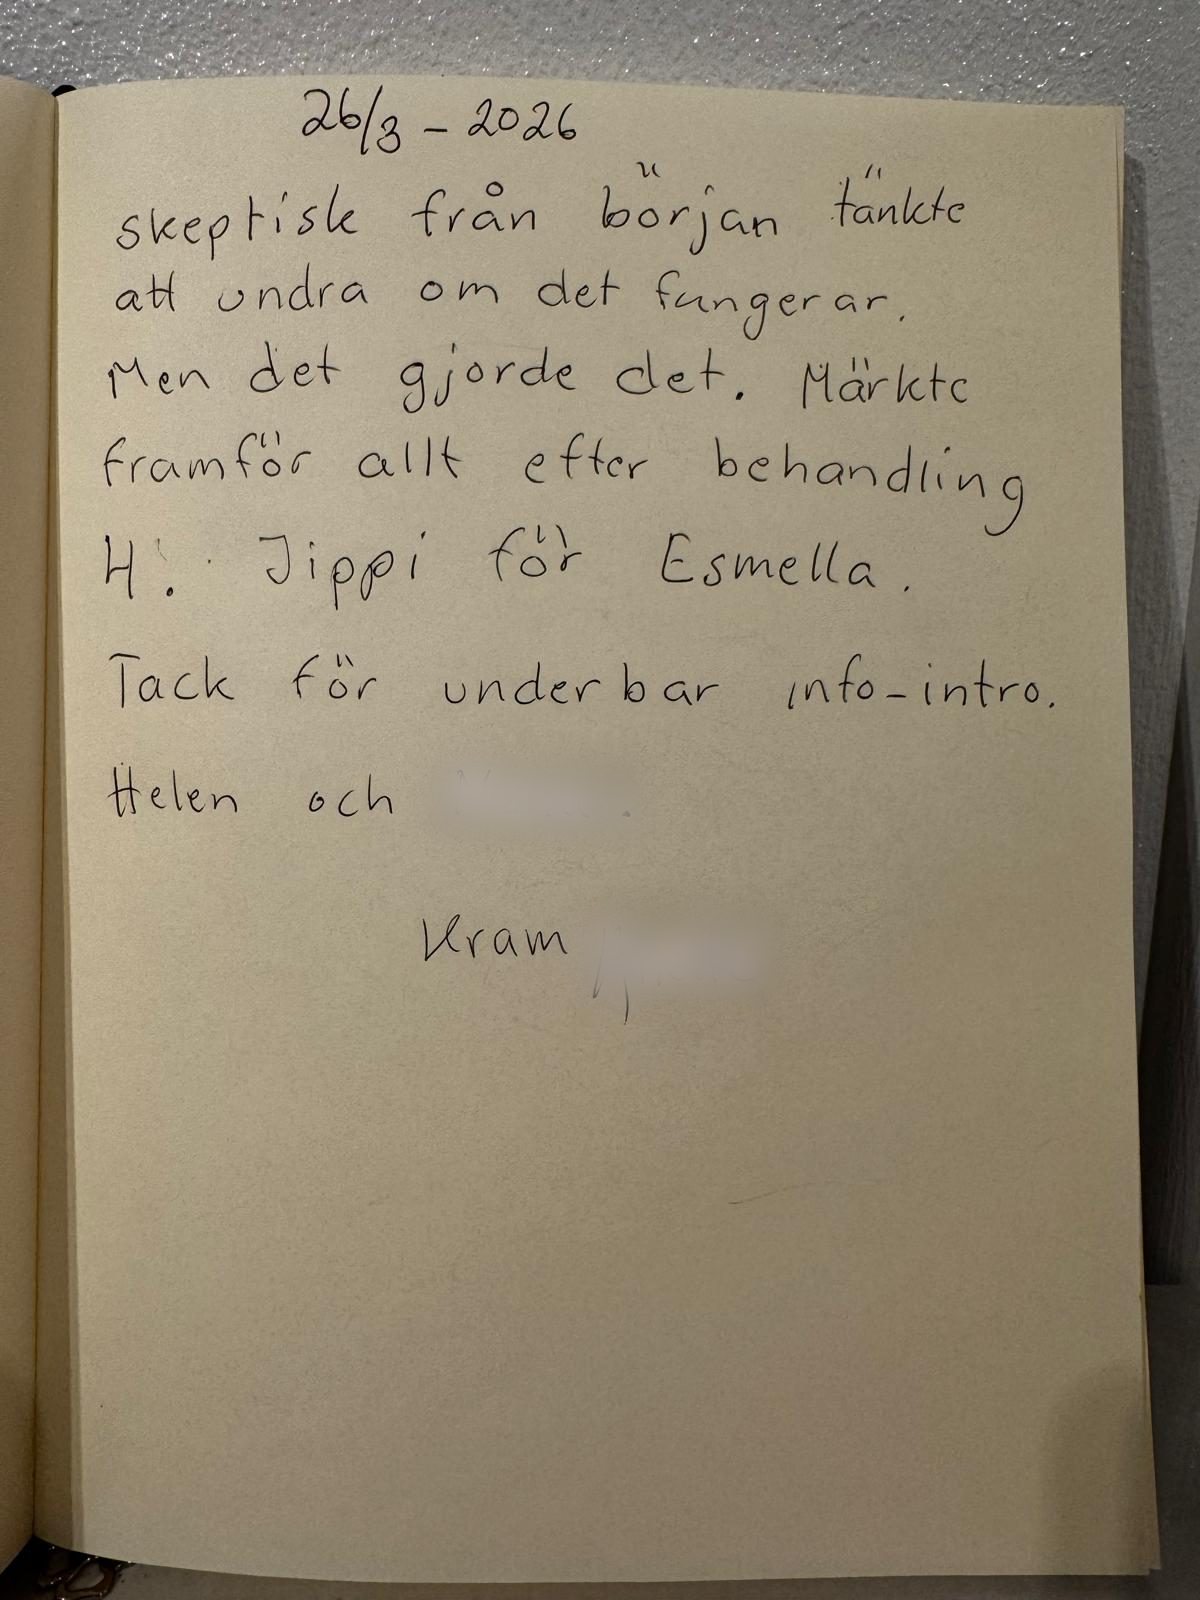 26/3 - 2026
skeptisk från början tänkte
att undra om det fungerar.
Men det gjorde det. Märkte
framför allt efter behandling
4! Jippi för Esmella.
Tack för underbar info-intro.
Helen och
Kram